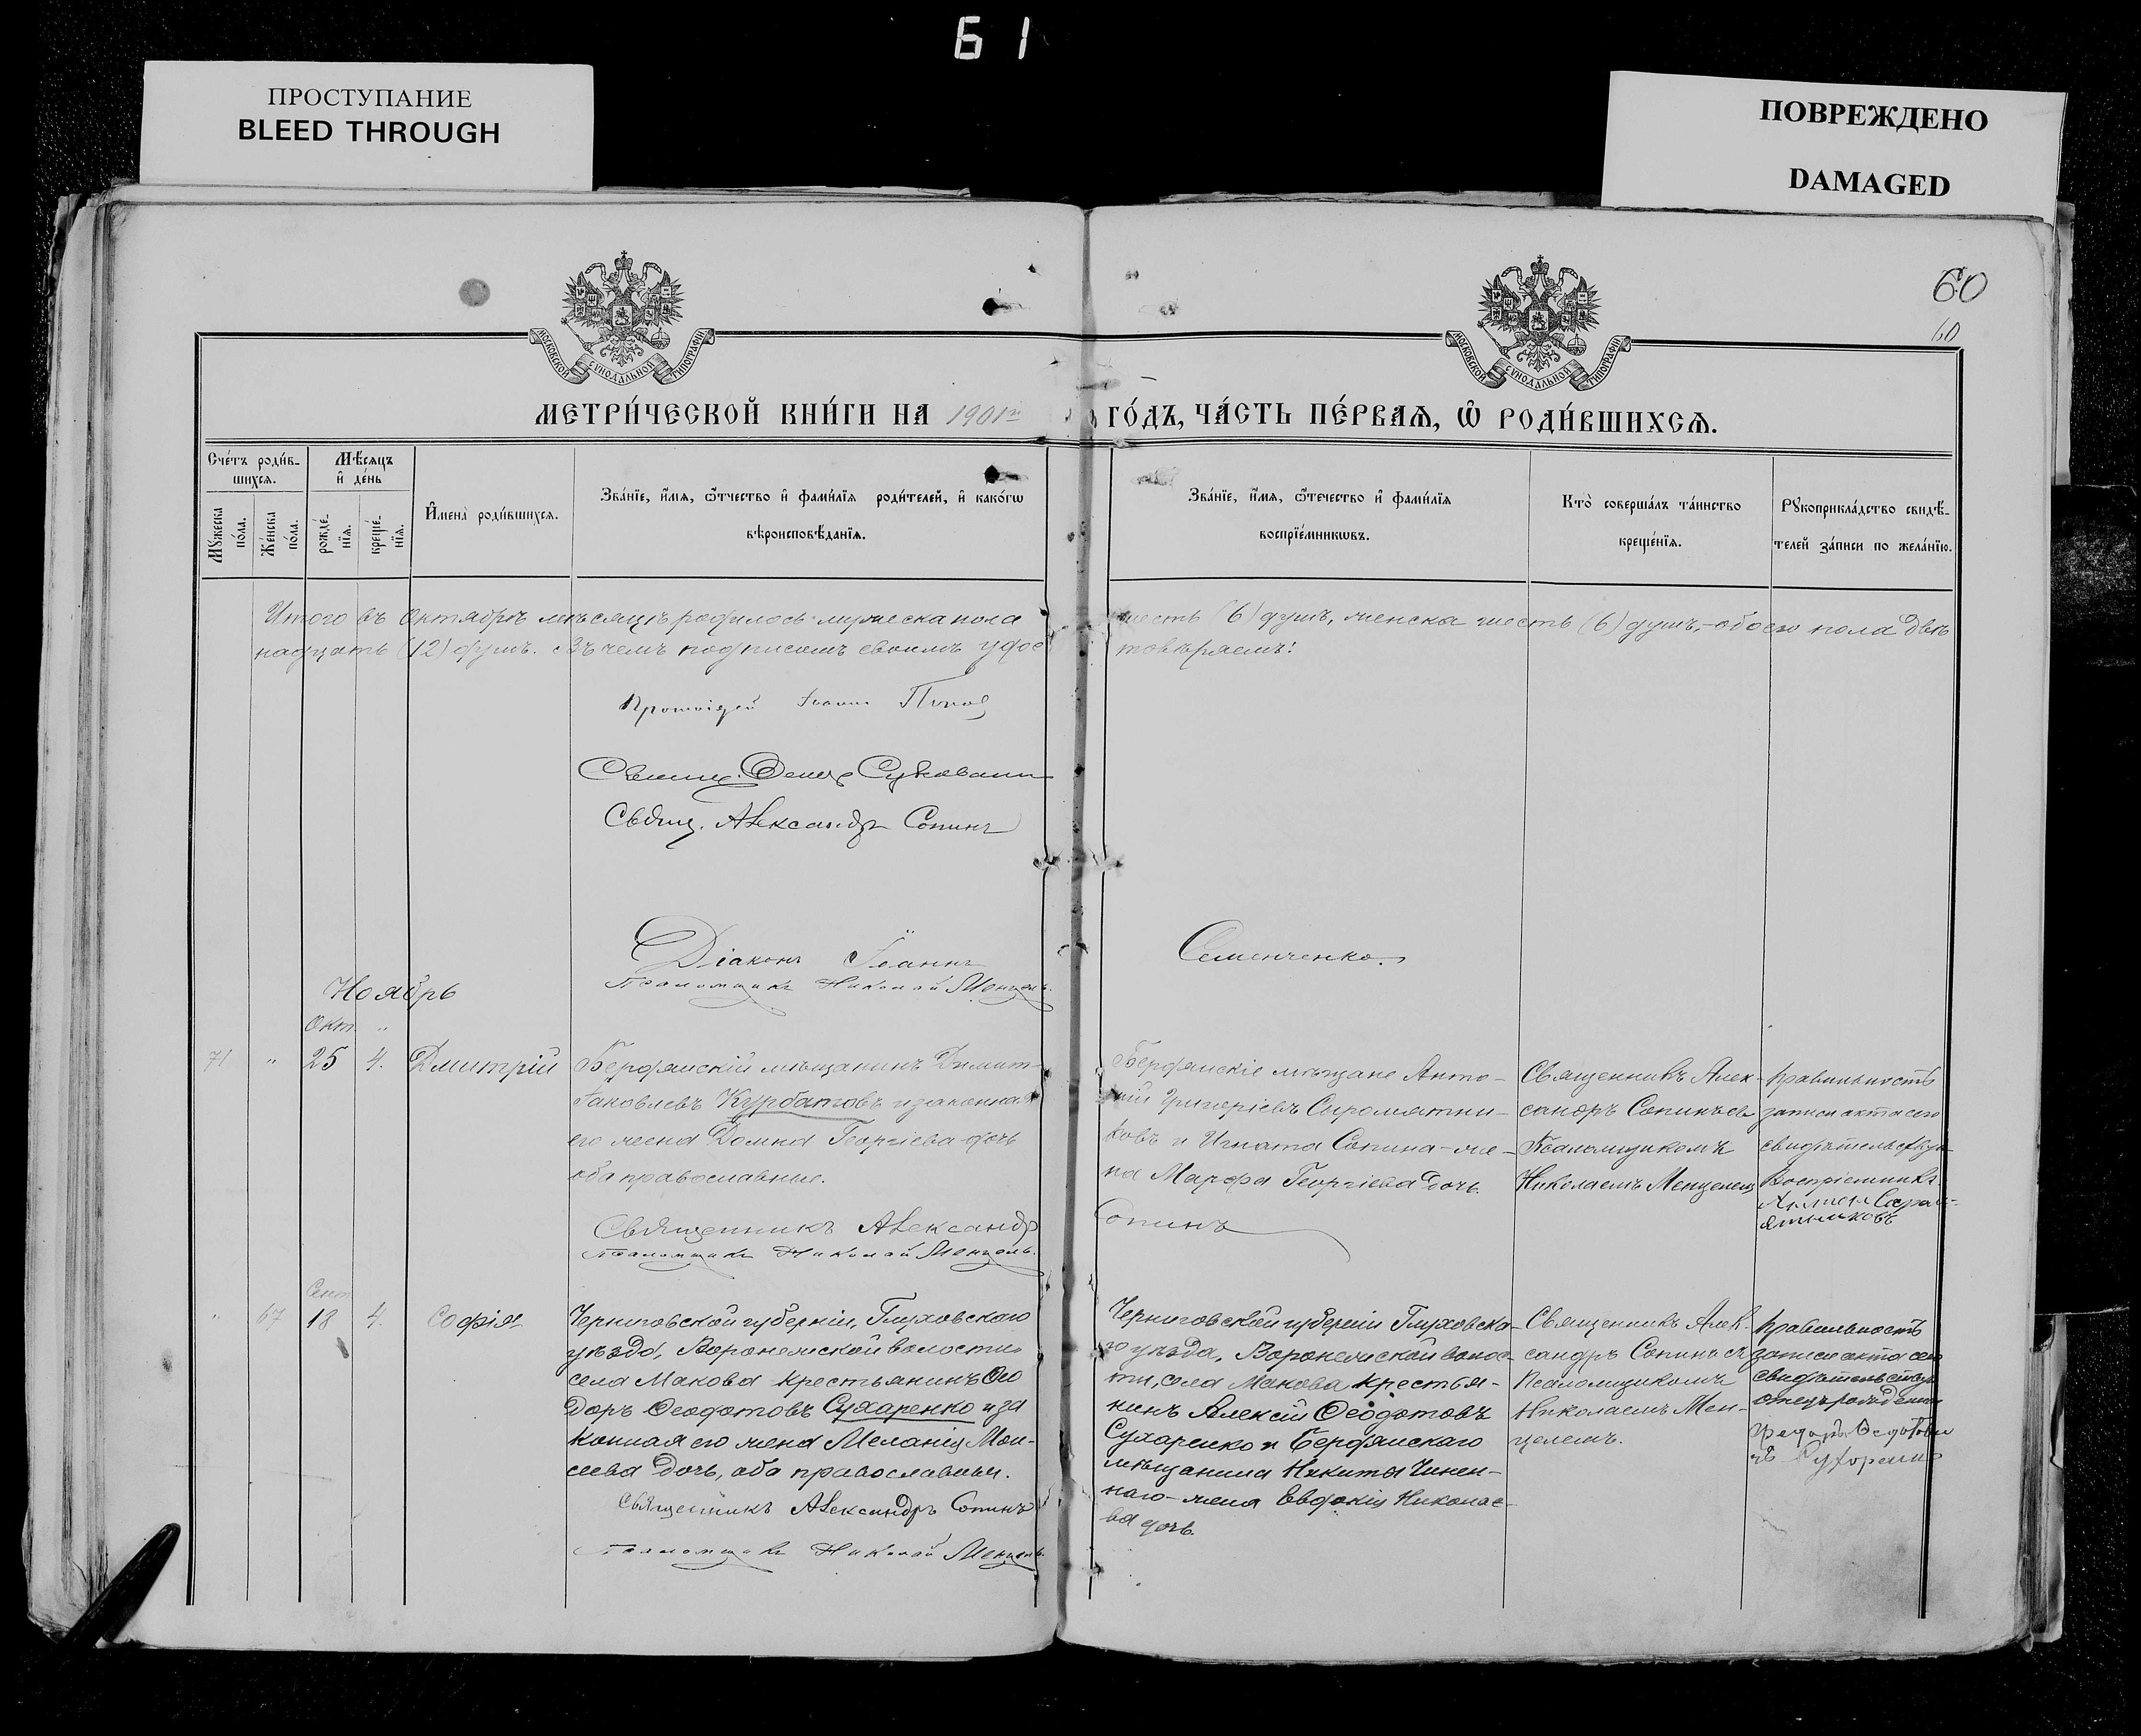 61
ПРОСТУПАНИЕ
BLEED THROUGH
ПОВРЕЖДЕНО
DAMAGED
60
60
МОСКОВСКОЙ СѴНОДАЛЬНОЙ ТИПОГРАФІИ
МОСКОВСКОЙ СѴНОДАЛЬНОЙ ТИПОГРАФІИ
МЕТРИ́ЧЕСКОЙ КНИ́ГИ НА 1901й ГО́ДЪ, ЧА́СТЬ ПЕ́РВАѦ, Ѽ РОДИ́ВШИХСѦ.
Сче́тъ роди́в-
шихсѧ.
Мꙋжеска по́ла.
Же́нска по́ла.
Мѣ́сяцъ
и҆ де́нь
рожде́-
нїѧ.
креще́-
нїѧ.
И҆мена̀ роди́вшихсѧ.
Зва́нїе, и҆́мѧ, ѻ҆́тчество и҆ фами́лїѧ роди́телей, и҆ како́гѡ
вѣроисповѣ́данїѧ.
Зва́нїе, и҆́мѧ, ѻ҆́течество и҆ фами́лїѧ
воспрїе́мникѡвъ.
Кто̀ соверша́лъ та́инство
креще́нїѧ.
Рꙋкоприкла́дство свидѣ́-
телей за́писи по жела́нїю.
Итого въ Октябрѣ мѣсяцѣ родилось мужеска пола шесть (6) душъ, женска шесть (6) душъ, – обоего пола двѣ
надцать (12) душъ. Въ чемъ подписомъ своимъ удос товѣряемъ:
Протоіерей Іоаннъ Попов
Свящ. Александръ Сопинъ
Діаконъ Іоаннъ Семенченко.
Псаломщикъ Николай Менцель.
Ноябрь
Окт. „
71 „ 25 4. Дмитрій
Бердянскій мѣщанинъ Димит-
Іаковлевъ Курбатовъ и законная
его жена Домна Георгіева дочь
оба православные.
Священникъ Александръ Сопинъ
Псаломщикъ Николай Менцель.
Бердянскіе мѣщане Анто-
ній Григоріевъ Сыромятни-
ковъ и Игната Сопина – же-
на Марфа Георгіева дочь.
Священникъ Алек-
сандръ Сопинъ съ
Псаломщикомъ
Николаемъ Менцелемъ
Правильность
записи акта сего
свидѣтельствую
Воспріемникъ
Сент.
„ 67 18 4. Софія
Черниговской губерніи, Глуховскаго
уѣзда, Воронежской волости
села Макова крестьянинъ Ѳео
доръ Ѳеодотовъ Сухаренко и за
конная его жена Меланія Мои-
сеева дочь, оба православные.
Священникъ Александръ Сопинъ
Псаломщикъ Николай Менцель.
Черниговской губерніи Глуховска-
го уѣзда, Воронежской волос-
ти, села Макова крестья-
нинъ Алексій Ѳеодотовъ
Сухаренко и Бердянскаго
мѣщанина Никита Чинен-
наго – жена Евдокія Николае-
ва дочь.
Священникъ Алек-
сандръ Сопинъ съ
Псаломщикомъ
Николаемъ Мен-
целемъ.
Правильность
записи акта сего
свидѣтельствую